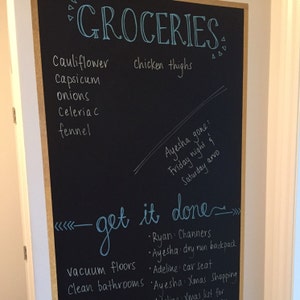 GROCERIES
Cauliflower
capsicum
onions
celeriac
fennel
chicken thighs
Ayesha gone:
Friday night &
Saturday arvo
get it done
vacuum floors
clean bathrooms
• Ryan: Channers
• Ayesha: dry run backpack
• Adeline: car seat
• Ayesha: Xmas shopping
Xmas list for